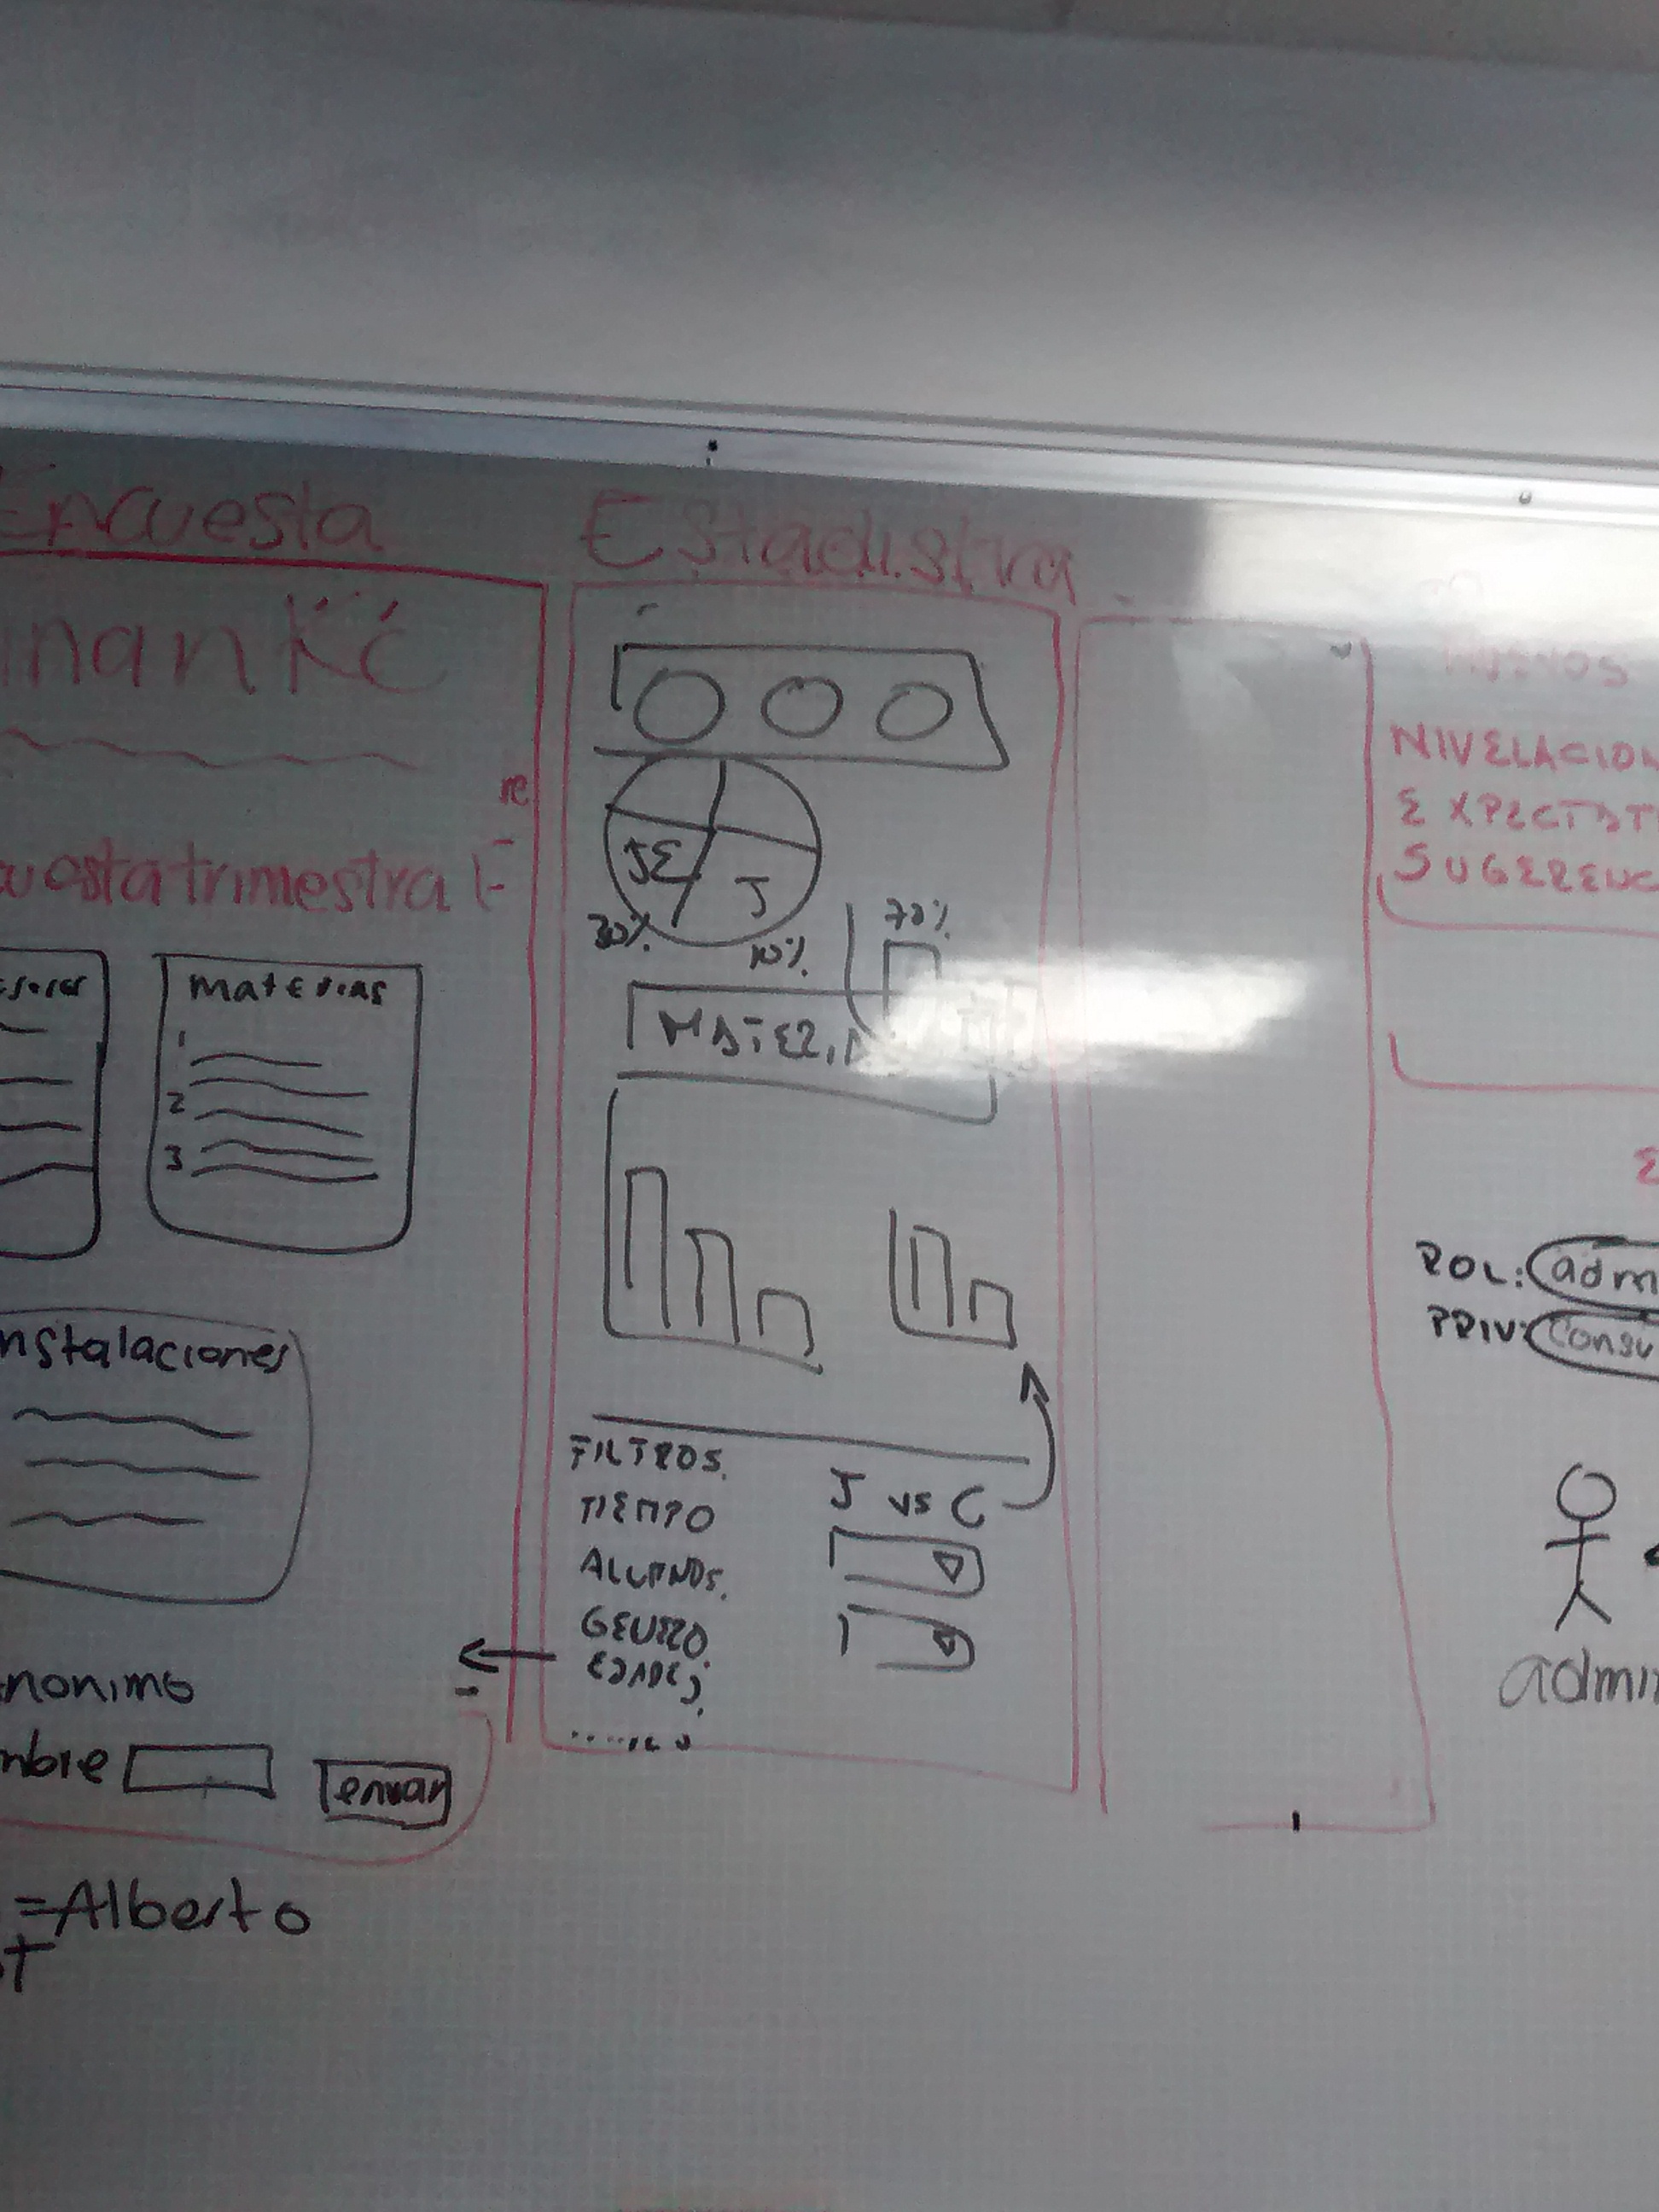 Encuesta
uesta trimestral
Materias
1
2
3
nstalaciones
nonimo
mbre
enviar
=Alberto
Estadistica
JE
J
30%
10%
70%
FILTROS.
TIEMPO
ALUMNOS.
GENERO.
EDADES
J vs C
NIVELACION
EXPECTAT
SUGERENC
ROL: adm
PRIV: Consu
admi